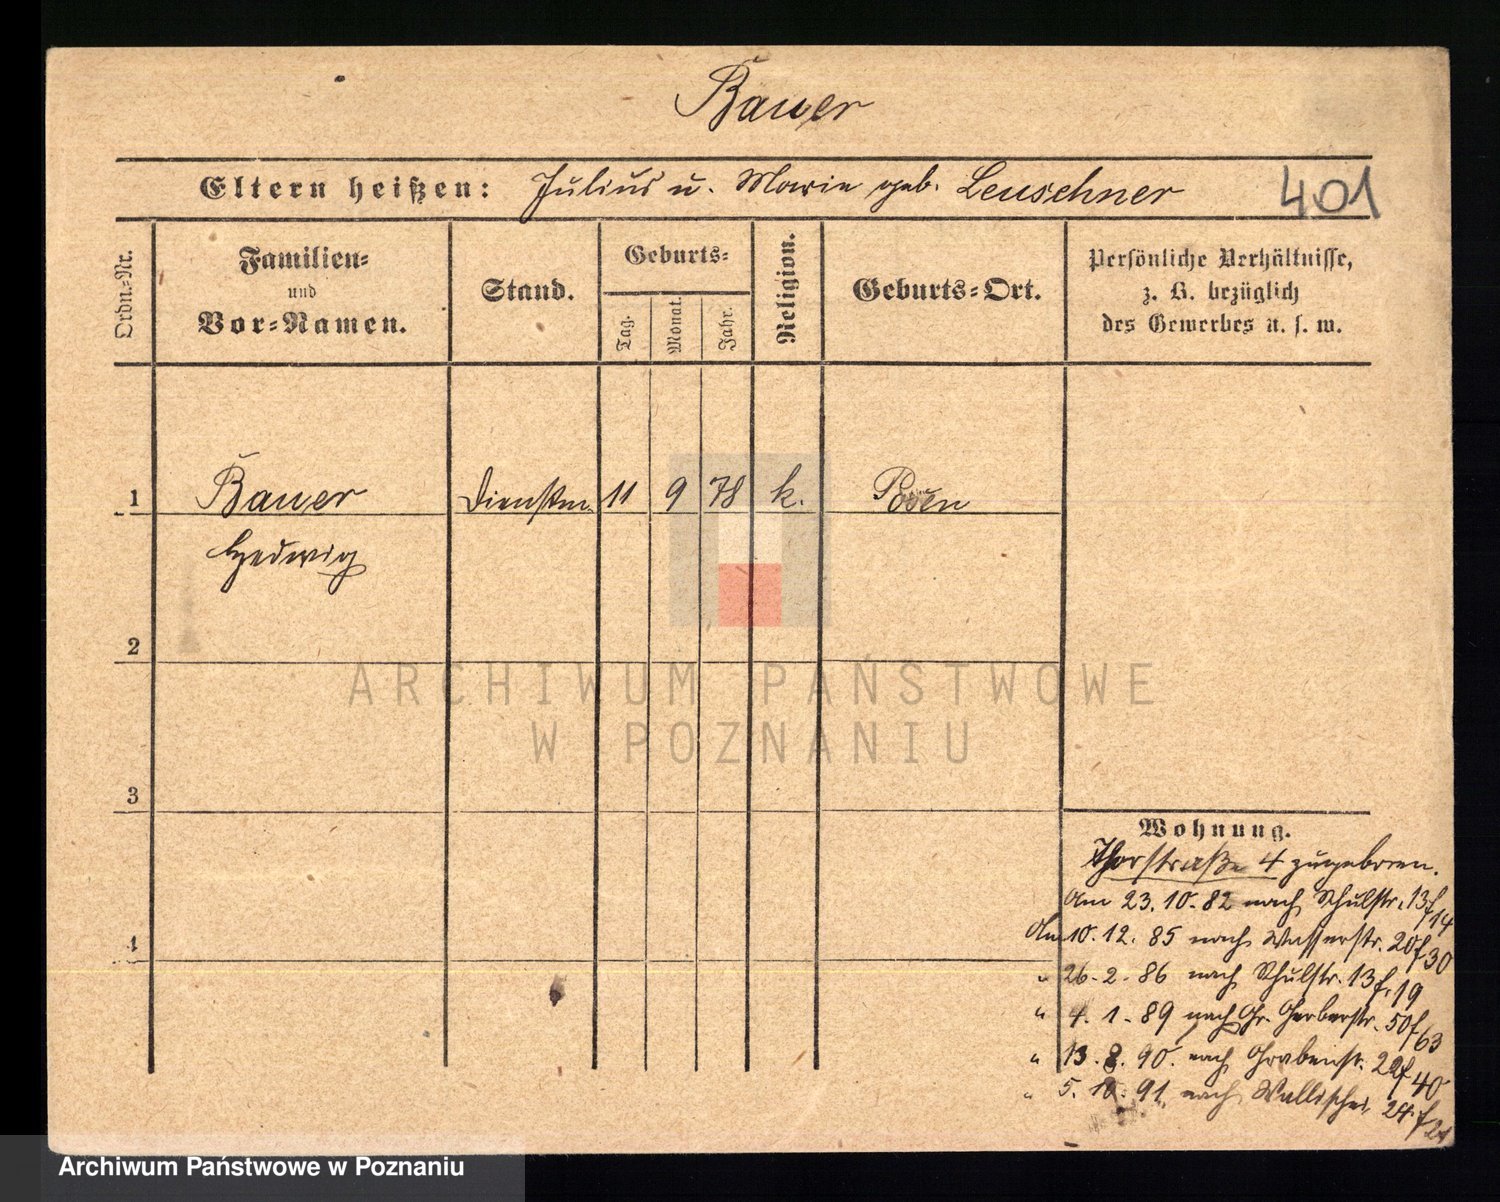 Bauer
Eltern heißen: Julius u. Marie geb. Leuschner
401
Ordn.-Nr.
Familien-
und
Vor-Namen.
Stand.
Geburts-
Tag.
Monat.
Jahr.
Religion.
Geburts-Ort.
Persönliche Verhältnisse,
z. B. bezüglich
des Gewerbes u. s. w.
1 Bauer Dienstm 11 9 78 k. Posen
Hedwig
2
3
4
Wohnung.
Thorstraße 4 zugeboren.
Am 23.10.82 nach Schulstr. 13 f 14
Am 10.12.85 nach Wasserstr. 20 f 30
" 26.2.86 nach Schulstr. 13 f. 19
" 4.1.89 nach Gr. Gerberstr. 50 f 63
" 13.8.90. nach Grabenstr. 22 f 40
" 5.10.91 nach Wallischei 24. f
ARCHIWUM PAŃSTWOWE
W POZNANIU
Archiwum Państwowe w Poznaniu